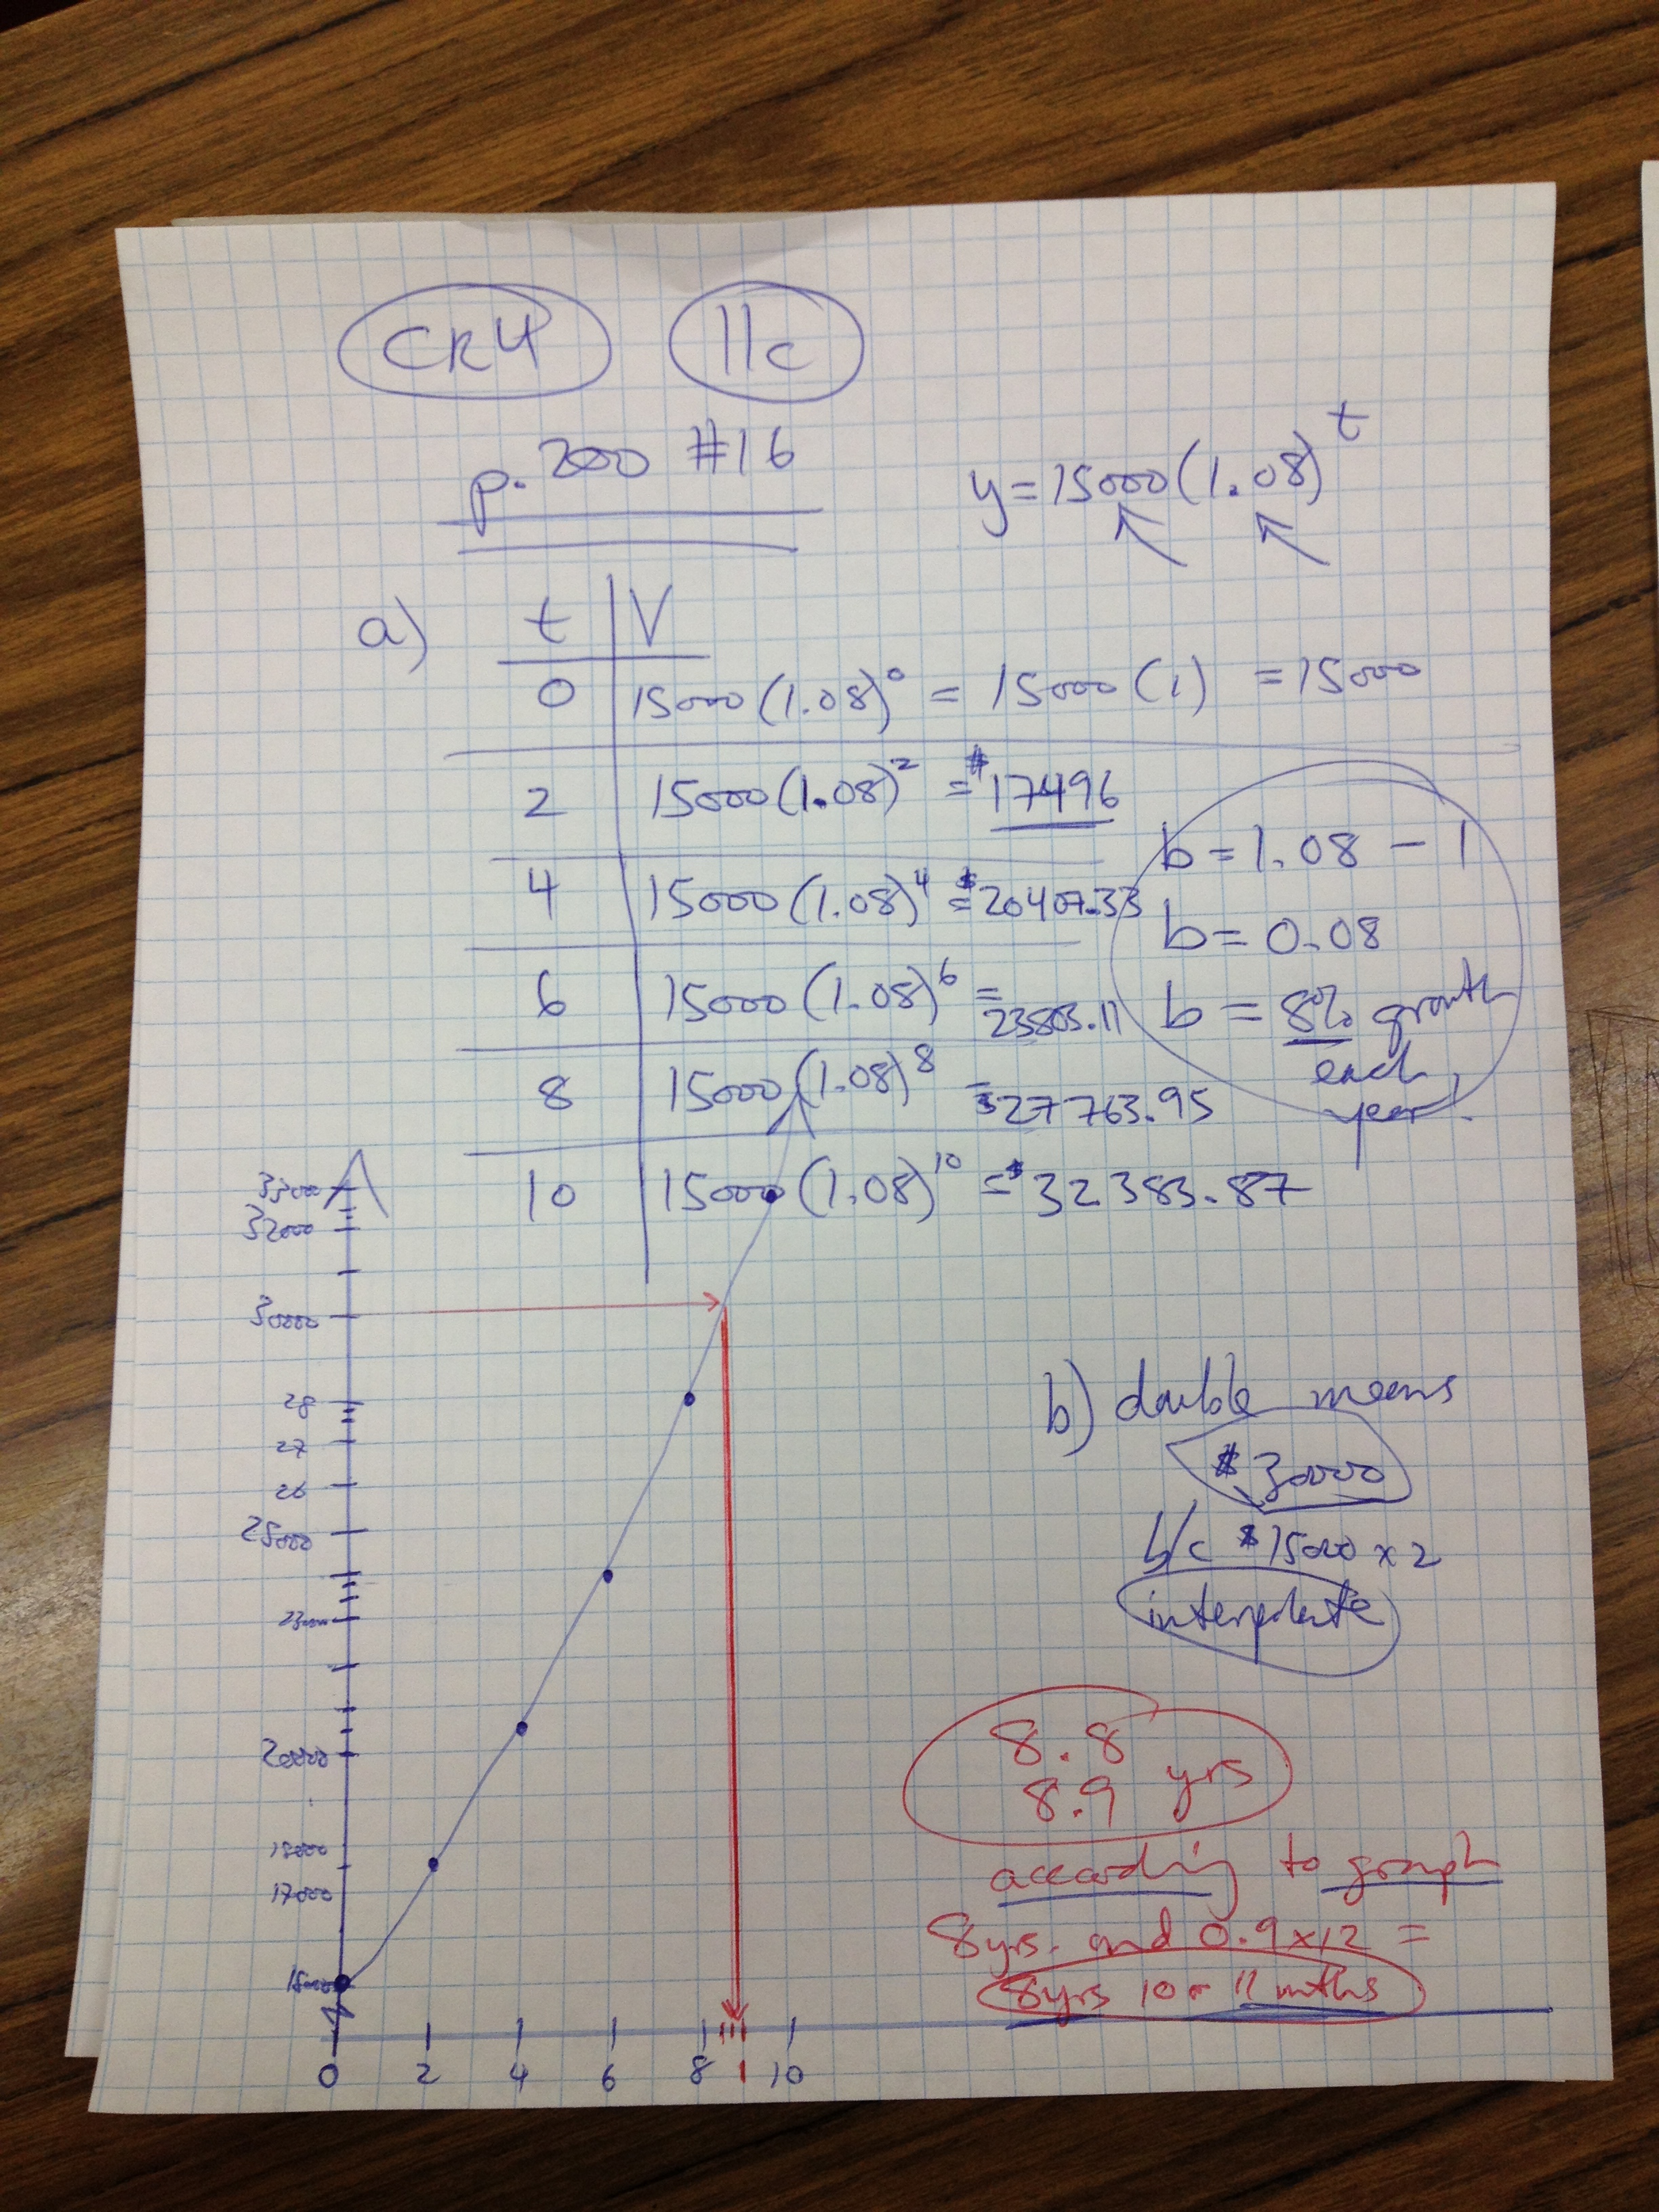 CR4 11c
p. 200 #16
y=15000(1.08)^t
a) t V
0 15000(1.08)^0 = 15000(1) =15000
2 15000(1.08)^2 =$17496
4 15000(1.08)^4 =$20407.33
6 15000(1.08)^6 =
23803.11
8 15000(1.08)^8 =
$27763.95
10 15000(1.08)^10 =$32383.87
b=1.08-1
b=0.08
b=8% growth
each
year.
33000
32000
30000
28
27
26
25000
23000
20000
18000
17000
15000
0 2 4 6 8 10
b) double means
$30000
b/c $15000 x 2
interpolate
8.8
8.9 yrs
according to graph
8yrs. and 0.9x12 =
8yrs 10 or 11 mths